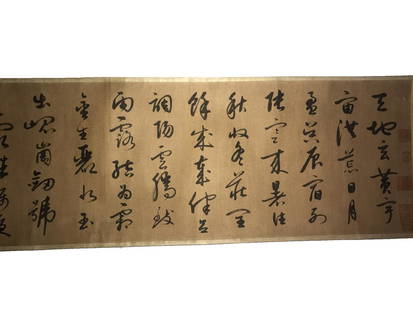 天地玄黃宇
宙洪荒日月
盈昃辰宿列
張寒來暑往
秋收冬藏閏
餘成歲律呂
調陽雲騰致
雨露結為霜
金生麗水玉
出崐崗劍號
珠稱夜